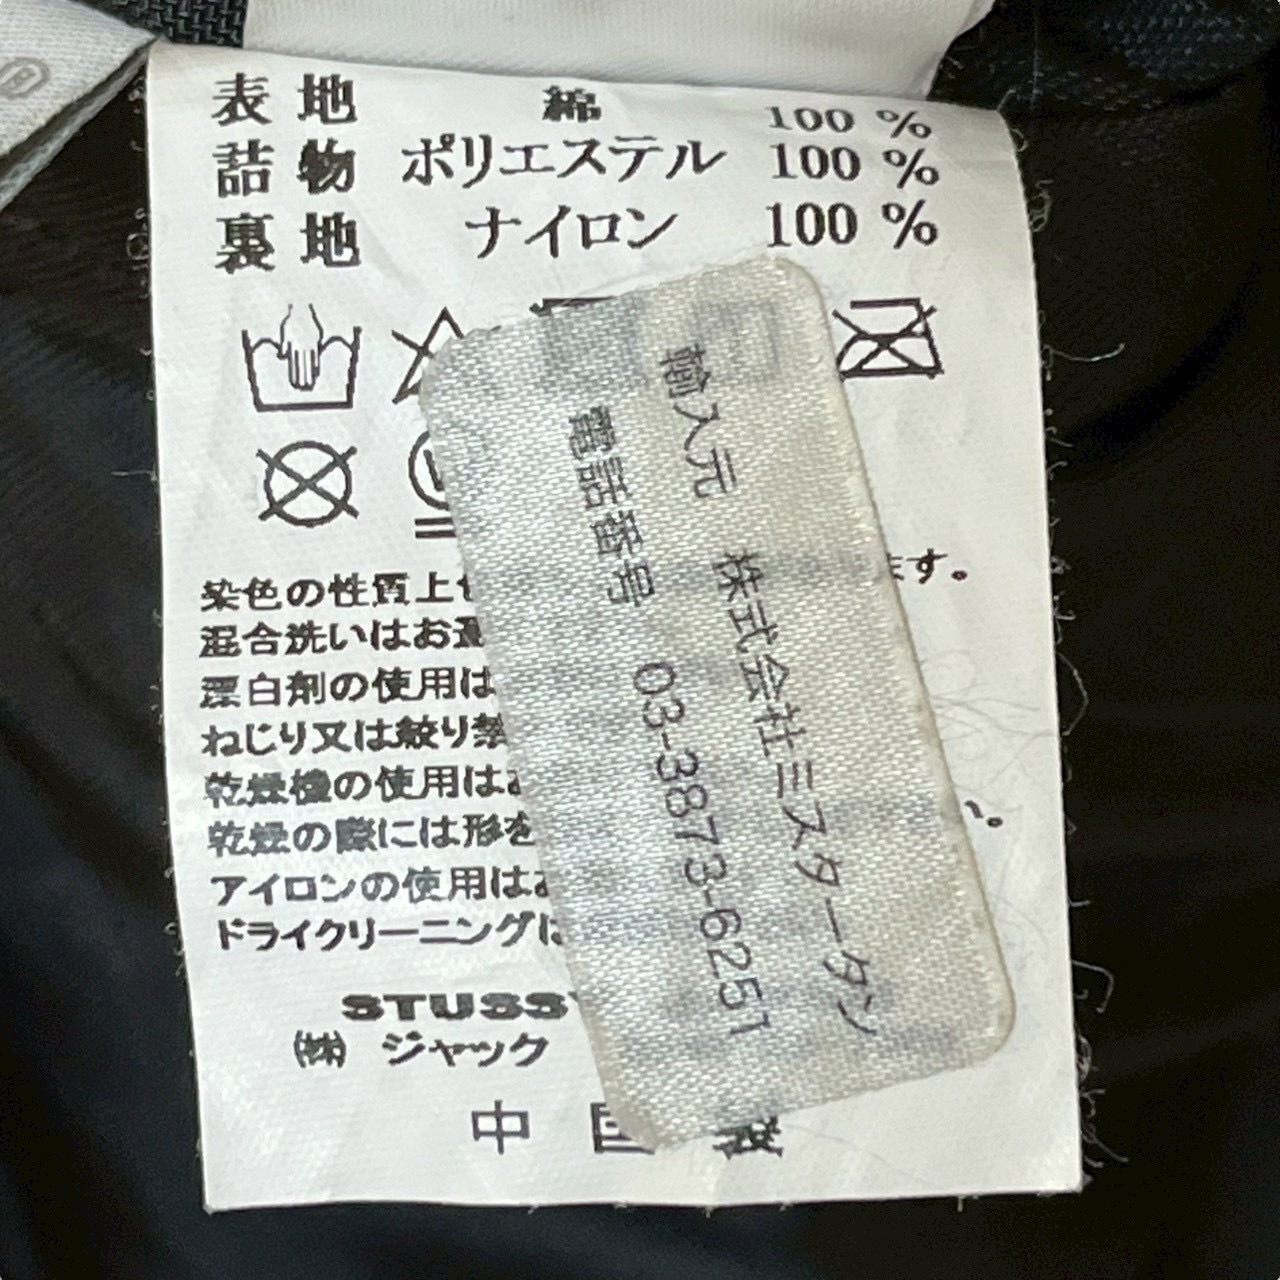 表地 綿 100 %
詰物 ポリエステル 100 %
裏地 ナイロン 100 %
輸入元 株式会社ミスタータン
電話番号 03-3873-6251
染色の性質上 ます。
混合洗いはお
漂白剤の使用は
ねじり又は絞り
乾燥機の使用は
乾燥の際には形を
アイロンの使用は
ドライクリーニング
STUSSY
㈱ ジャック
中国製